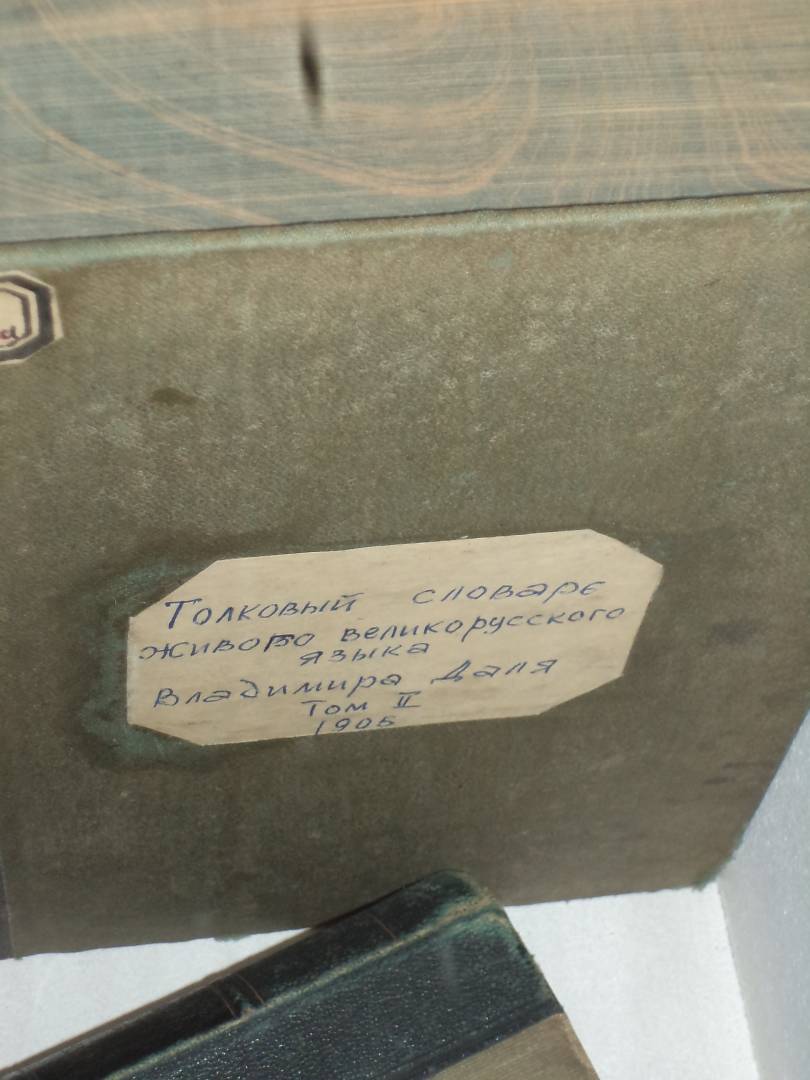 Толковый словарь
живого великорусского
языка
Владимира Даля
Том II
1905